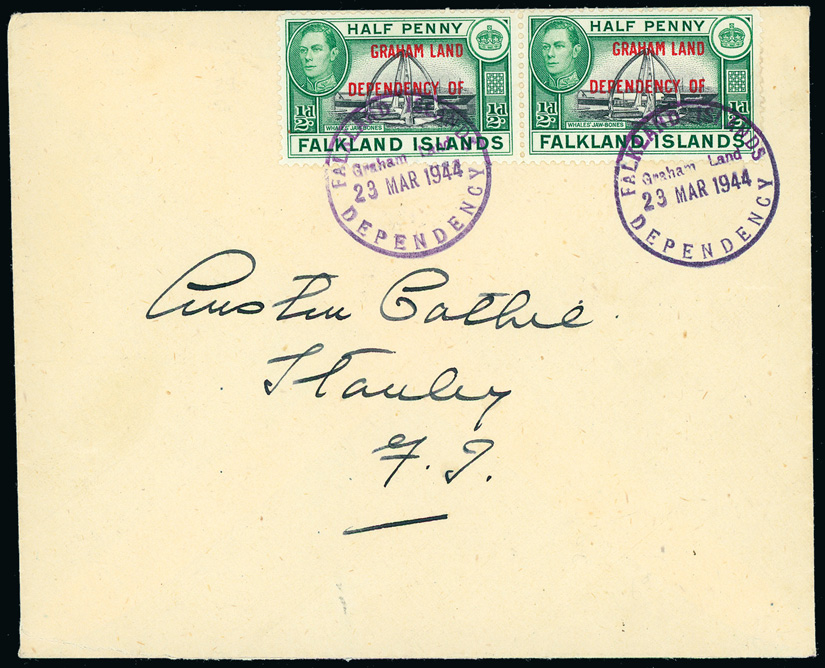 HALF PENNY
GRAHAM LAND
DEPENDENCY OF
½d ½d
WHALES' JAW-BONES
FALKLAND ISLANDS
HALF PENNY
GRAHAM LAND
DEPENDENCY OF
½d ½d
WHALES' JAW-BONES
FALKLAND ISLANDS
FALKLAND ISLANDS
Graham Land
23 MAR 1944
DEPENDENCY
FALKLAND ISLANDS
Graham Land
23 MAR 1944
DEPENDENCY
Austin Cathie
Stanley
F. I.